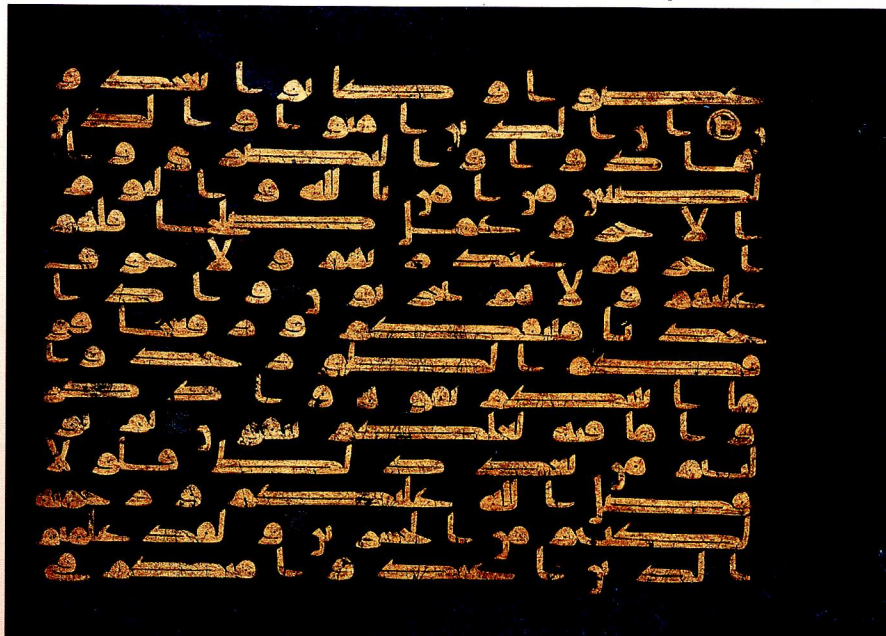 عصوا وكانوا يعتدو
ن ان الذين امنوا والذين
هادوا والنصرى وا
لصبين من امن بالله واليوم
الاخر وعمل صلحا فلهم
اجرهم عند ربهم ولا خوف
عليهم ولا هم يحزنون واذ ا
خذنا ميثقكم ورفعنا فو
قكم الطور خذوا
ما اتينكم بقوة واذكر
وا ما فيه لعلكم تتقون ثم تو
ليتم من بعد ذلك فلولا
فضل الله عليكم ورحمته
لكنتم من الخسرين ولقد علمتم
الذين اعتدوا منكم في